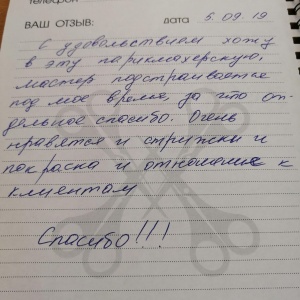 телефон
ВАШ ОТЗЫВ: дата 5.09.19
С удовольствием хожу
в эту парикмахерскую,
мастер подстраивается
под мое время, за что от-
дельное спасибо. Очень
нравятся и стрижки и
покраска и отношение к
клиентам
Спасибо!!!